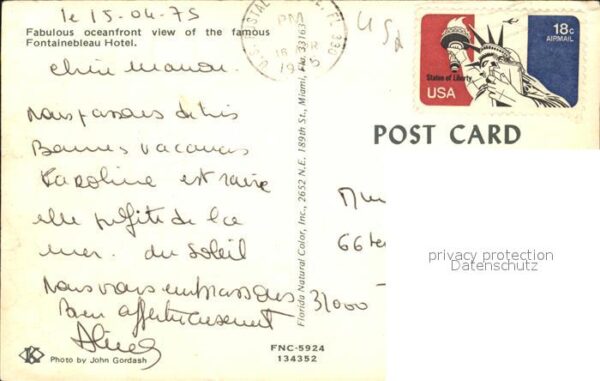 le 15-04-75
Fabulous oceanfront view of the famous
Fontainebleau Hotel.
Chère
Nous passons de très
Bonnes vacances
Karoline est ravie
elle profite de la
mer. du Soleil
Nous vous embrassons
Bien affectueusement
U.S. POSTAL
PM
FL 330
USA
18c
AIRMAIL
Statue of Liberty
USA
POST CARD
66
31000
privacy protection
Datenschutz
Florida Natural Color, Inc., 2652 N.E. 189th St., Miami, Fla. 33163
FNC-5924
134352
K
Photo by John Gordash